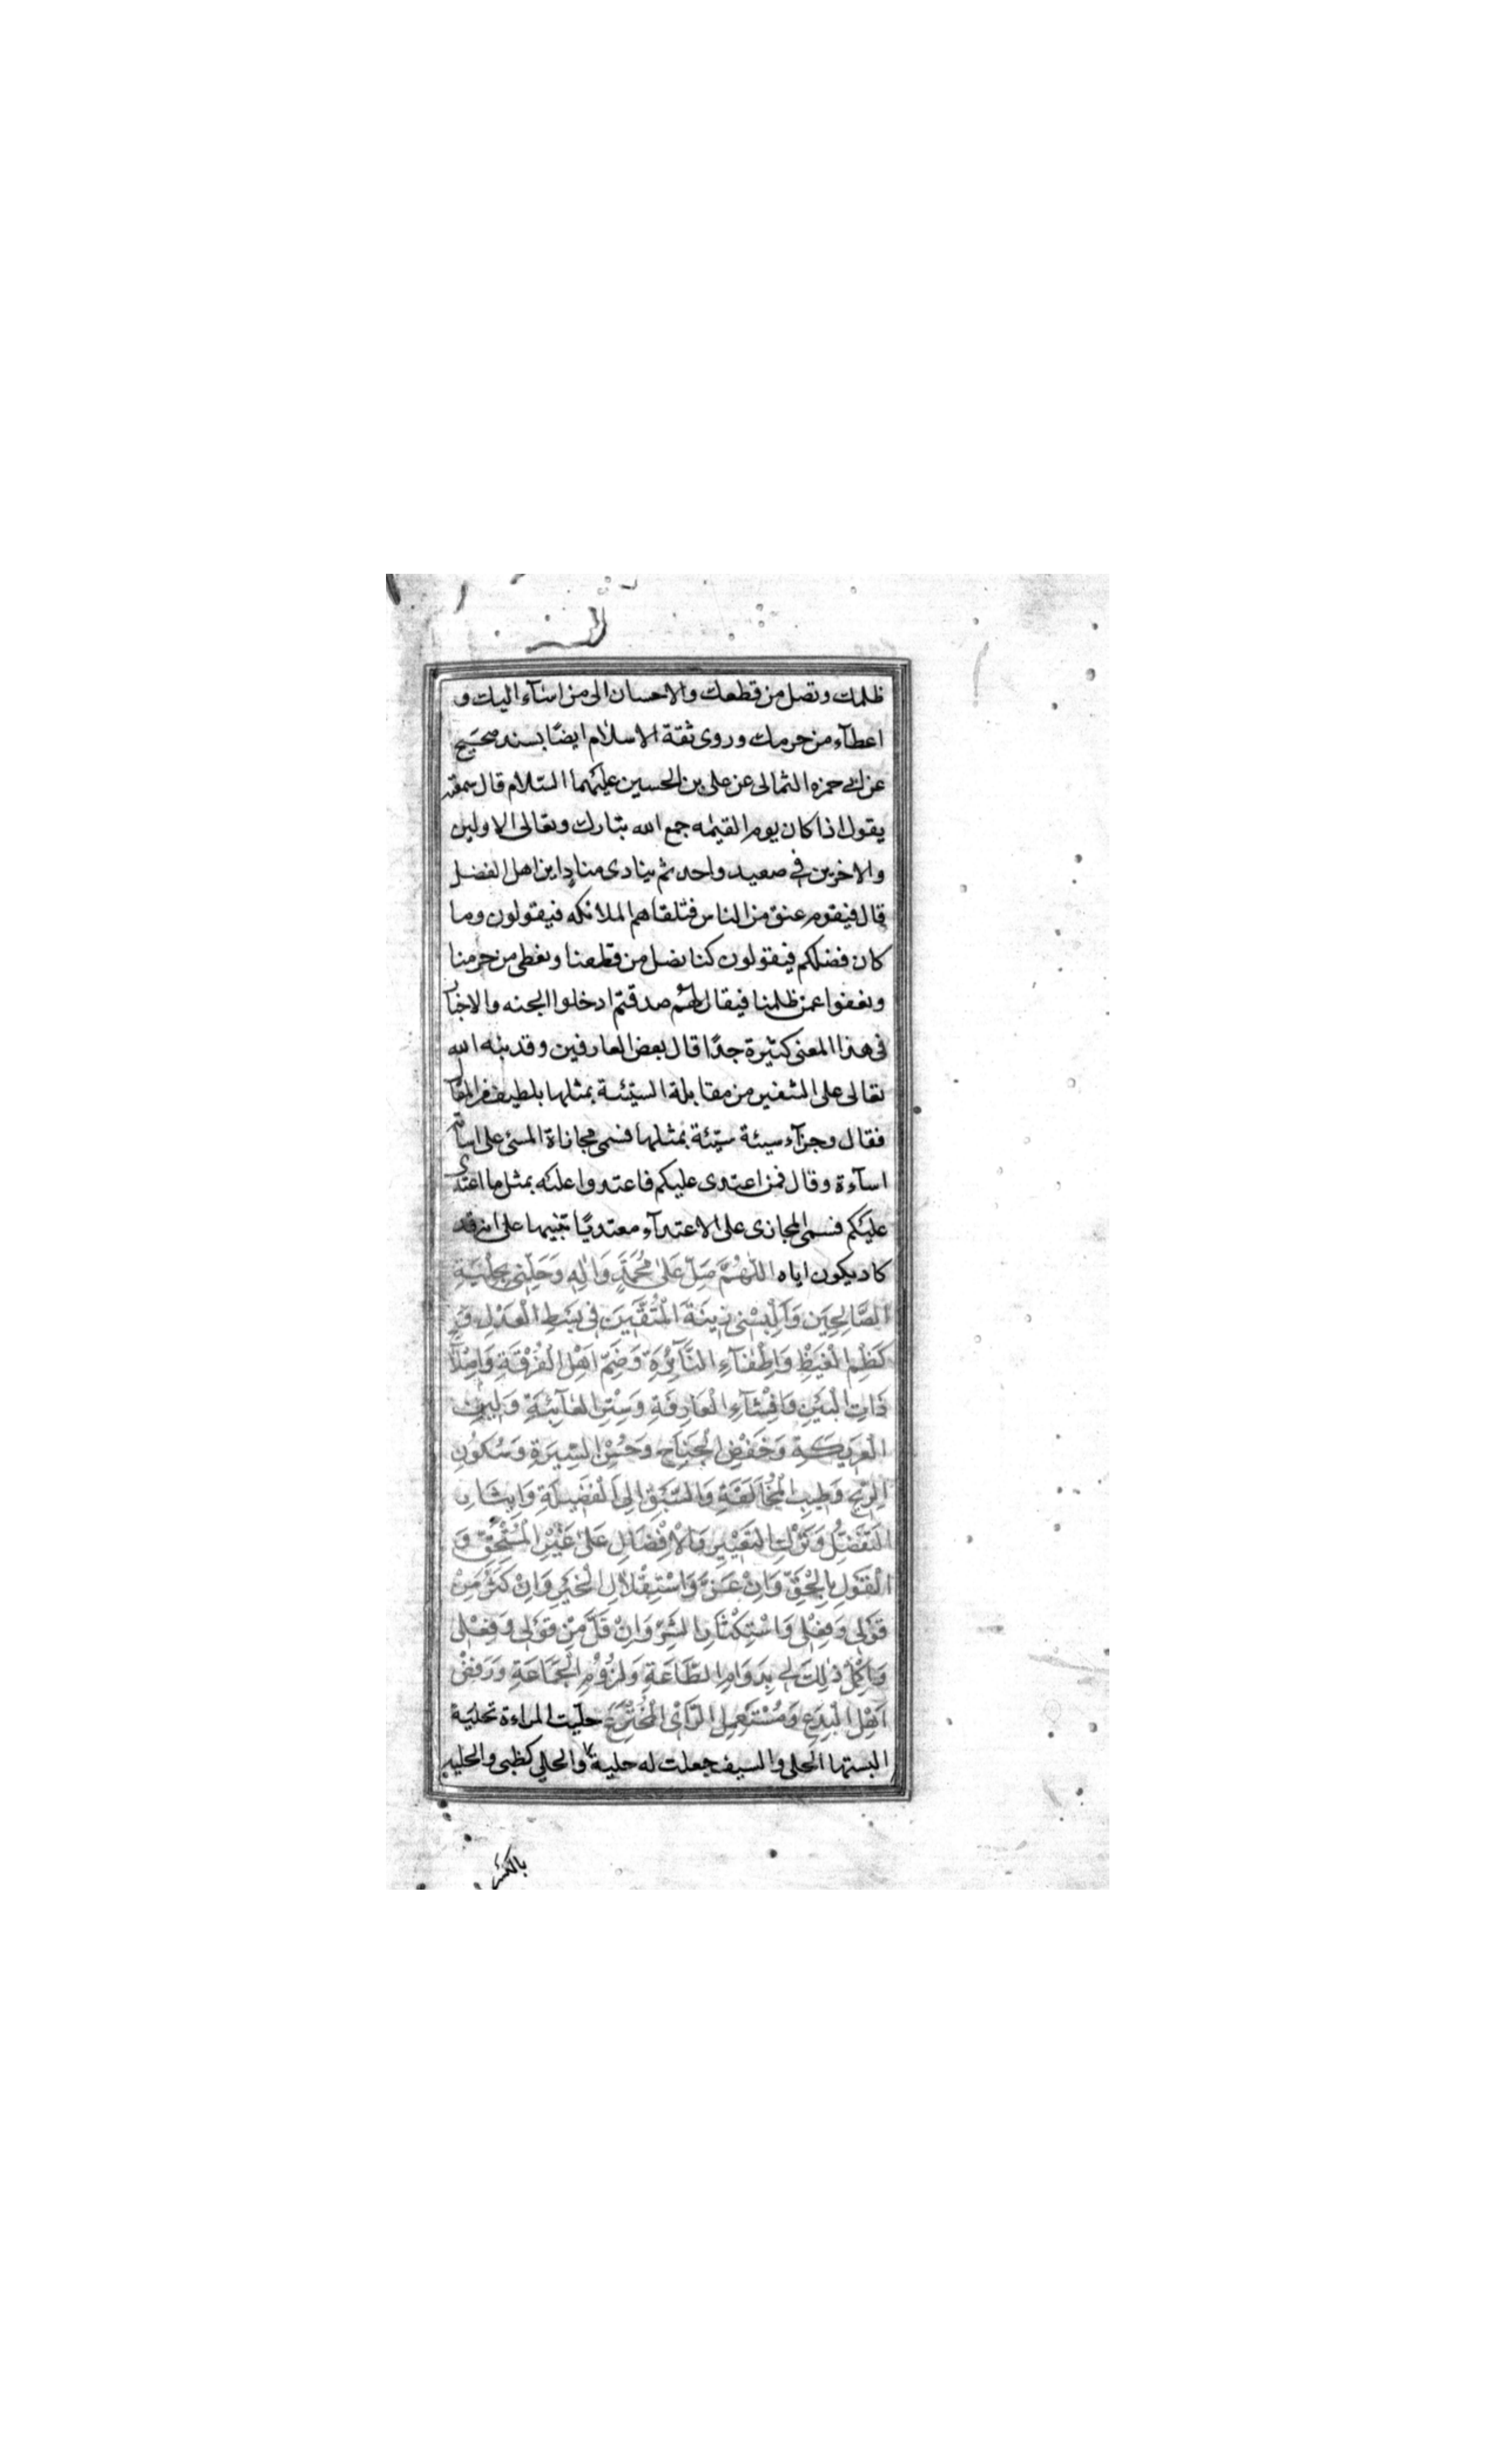 ظلمك وتصل من قطعك والاحسان الى من اسآء اليك و
اعطآء من حرمك وروى ثقة الاسلام ايضًا بسند صحيح
عن ابي حمزه الثمالى عن على بن الحسين عليهما السّلام قال سمعته
يقول اذا كان يوم القيٰمه جمع الله تبارك وتعالى الاولين
والاخرين فى صعيد واحد ثم ينادى منادٍ اين اهل الفضل
قال فيقوم عنق من الناس فتلقاهم الملائكه فيقولون وما
كان فضلكم فيقولون كنا نصل من قطعنا ونعطى من حرمنا
ونعفوا عمن ظلمنا فيقال لهم صدقتم ادخلوا الجنه والاخبار
فى هذا المعنى كثيرة جدًا قال بعض العارفين وقد نبه الله
تعالى على المنفير من مقابلة السيّئة بمثلها بلطيف من المقال
فقال وجزآء سيئة سيّئة بمثلها فسمى مجازاة المسئ على اسائته
اسآءة وقال فمن اعتدى عليكم فاعتدوا عليه بمثل ما اعتدى
عليكم فسمى المجازى على الاعتدآء معتديًا تنبيها على انه قد
كاد يكون اياه اللّٰهُمَّ صَلِّ عَلىٰ مُحَمَّدٍ وَاٰلِهِ وَحَلِّنى بِحِلْيَةِ
الصَّالِحِينَ وَاَلْبِسْنى زينَةَ الْمُتَّقينَ فى بَسْطِ الْعَدْلِ وَ
كَظْمِ الْغَيْظِ وَاِطْفآءِ النَّآئِرَةِ وَضَمِّ اَهْلِ الْفُرْقَةِ وَاِصْلٰاحِ
ذاتِ الْبَيْنِ وَاِفْشآءِ الْعارِفَةِ وَسَتْرِ الْعآئِبَةِ وَلينِ
الْعَريكَةِ وَخَفْضِ الْجَناحِ وَحُسْنِ السّيرَةِ وَسُكُونِ
الرّيحِ وَطيبِ الْمُخالَقَةِ وَالسَّبْقِ اِلَى الْفَضيلَةِ وَايثارِ
التَّفَضُّلِ وَتَرْكِ التَّعْييرِ وَالْاِفْضالِ عَلىٰ غَيْرِ الْمُسْتَحِقِّ وَ
الْقَوْلِ بِالْحَقِّ وَاِنْ عَزَّ وَاسْتِقْلٰالِ الْخَيْرِ وَاِنْ كَثُرَ مِنْ
قَوْلى وَفِعْلى وَاسْتِكْثارِ الشَّرِّ وَاِنْ قَلَّ مِنْ قَوْلى وَفِعْلى
وَاَكْمِلْ ذٰلِكَ لى بِدَوامِ الطّاعَةِ وَلُزُومِ الْجَماعَةِ وَرَفْضِ
اَهْلِ الْبِدَعِ وَمُسْتَعْمِلِ الرَّاْىِ الْمُخْتَرَعِ حلّيت المراءة تحلية
البستها الحلى والسيف جعلت له حلية والحلي كظبى والحلية
بالكسر